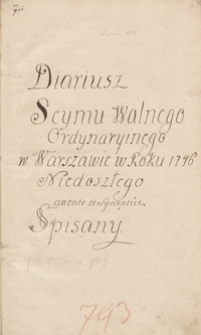 Diariusz
Seymu Walnego
Ordynaryinego
w Warszawie w Roku 1746
Niedoszłego
Spisany
793